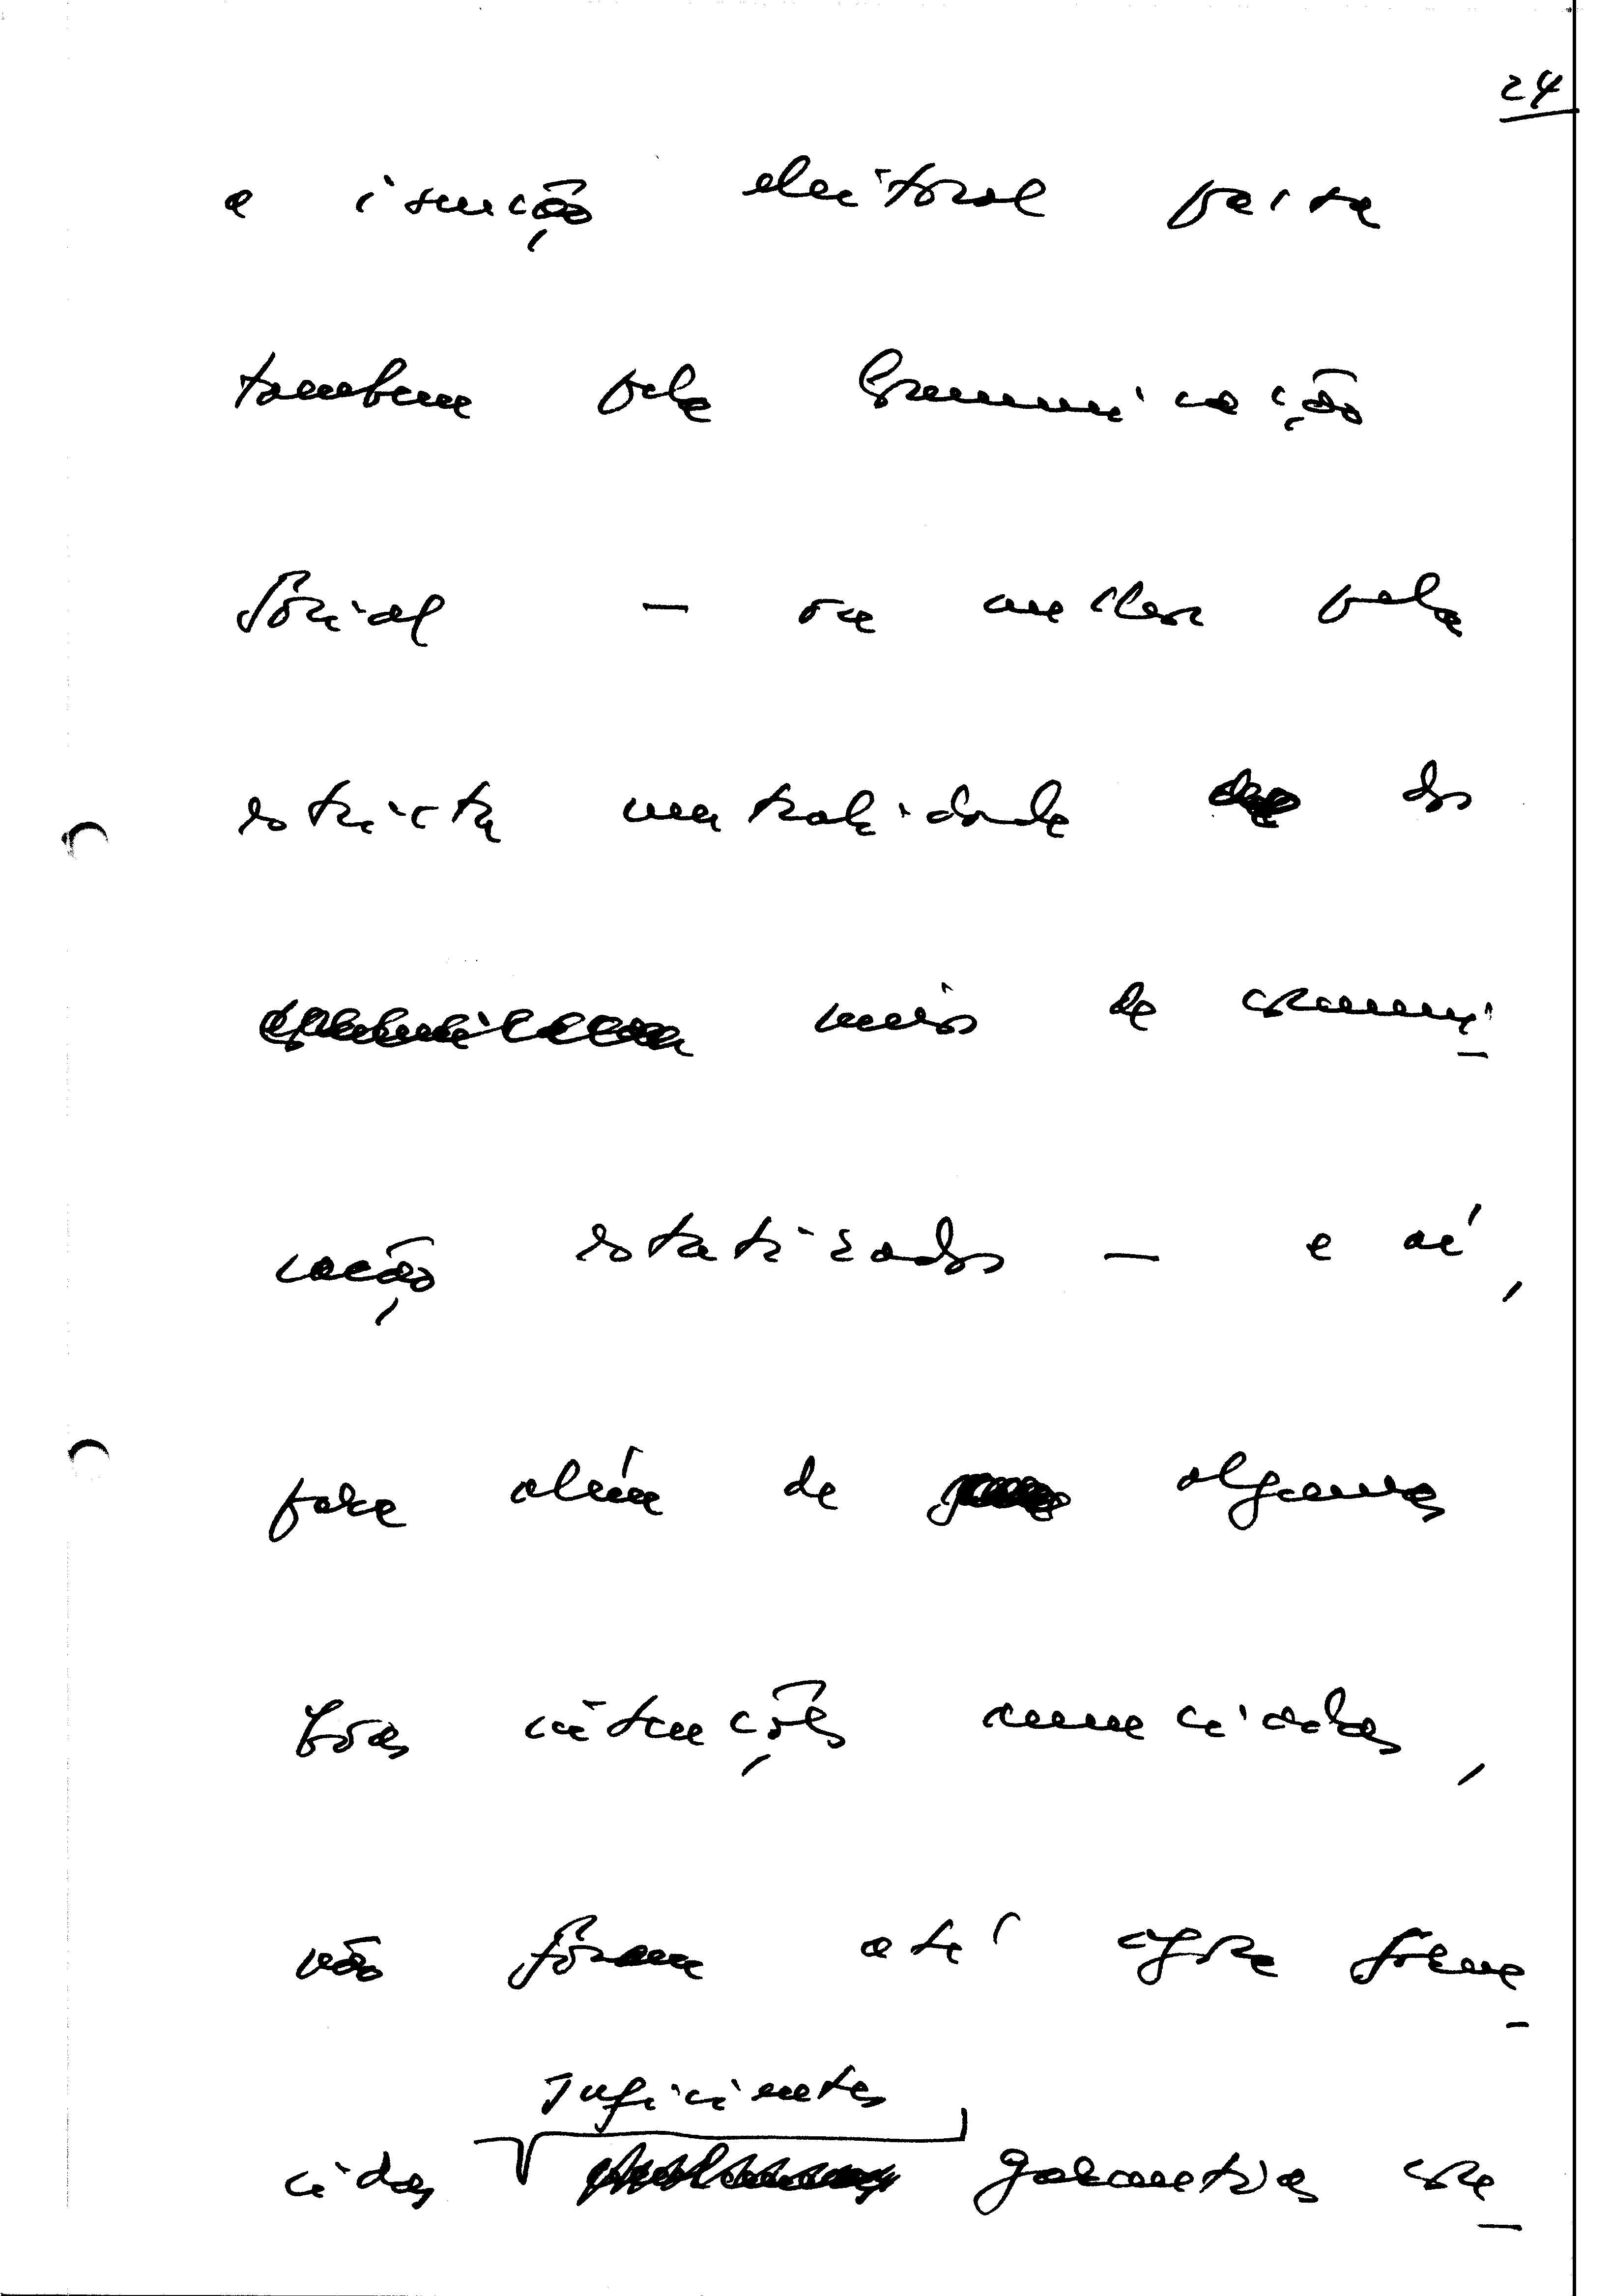 24
a isenção eleitoral passa
tambem pela Comunicação
Social — ou melhor pela
estricta neutralidade dos
meios de comuni-
cação estatizados — e aí,
para além de algumas
boas intenções anunciadas,
não foram até agora forne-
suficientes
cidas garantias con-